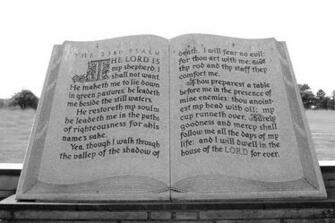 THE 23RD PSALM
THE LORD IS
my shepherd; I
shall not want.
He maketh me to lie down
in green pastures: he leadeth
me beside the still waters.
He restoreth my soul: he
leadeth me in the paths
of righteousness for his
name's sake.
Yea, though I walk through
the valley of the shadow of
death, I will fear no evil:
for thou art with me; 
thy rod and thy staff they
comfort me.
Thou preparest a table
before me in the presence of
mine enemies: thou anoint-
est my head with oil; my
cup runneth over. Surely
goodness and mercy shall
follow me all the days of my
life: and I will dwell in the
house of the LORD for ever.